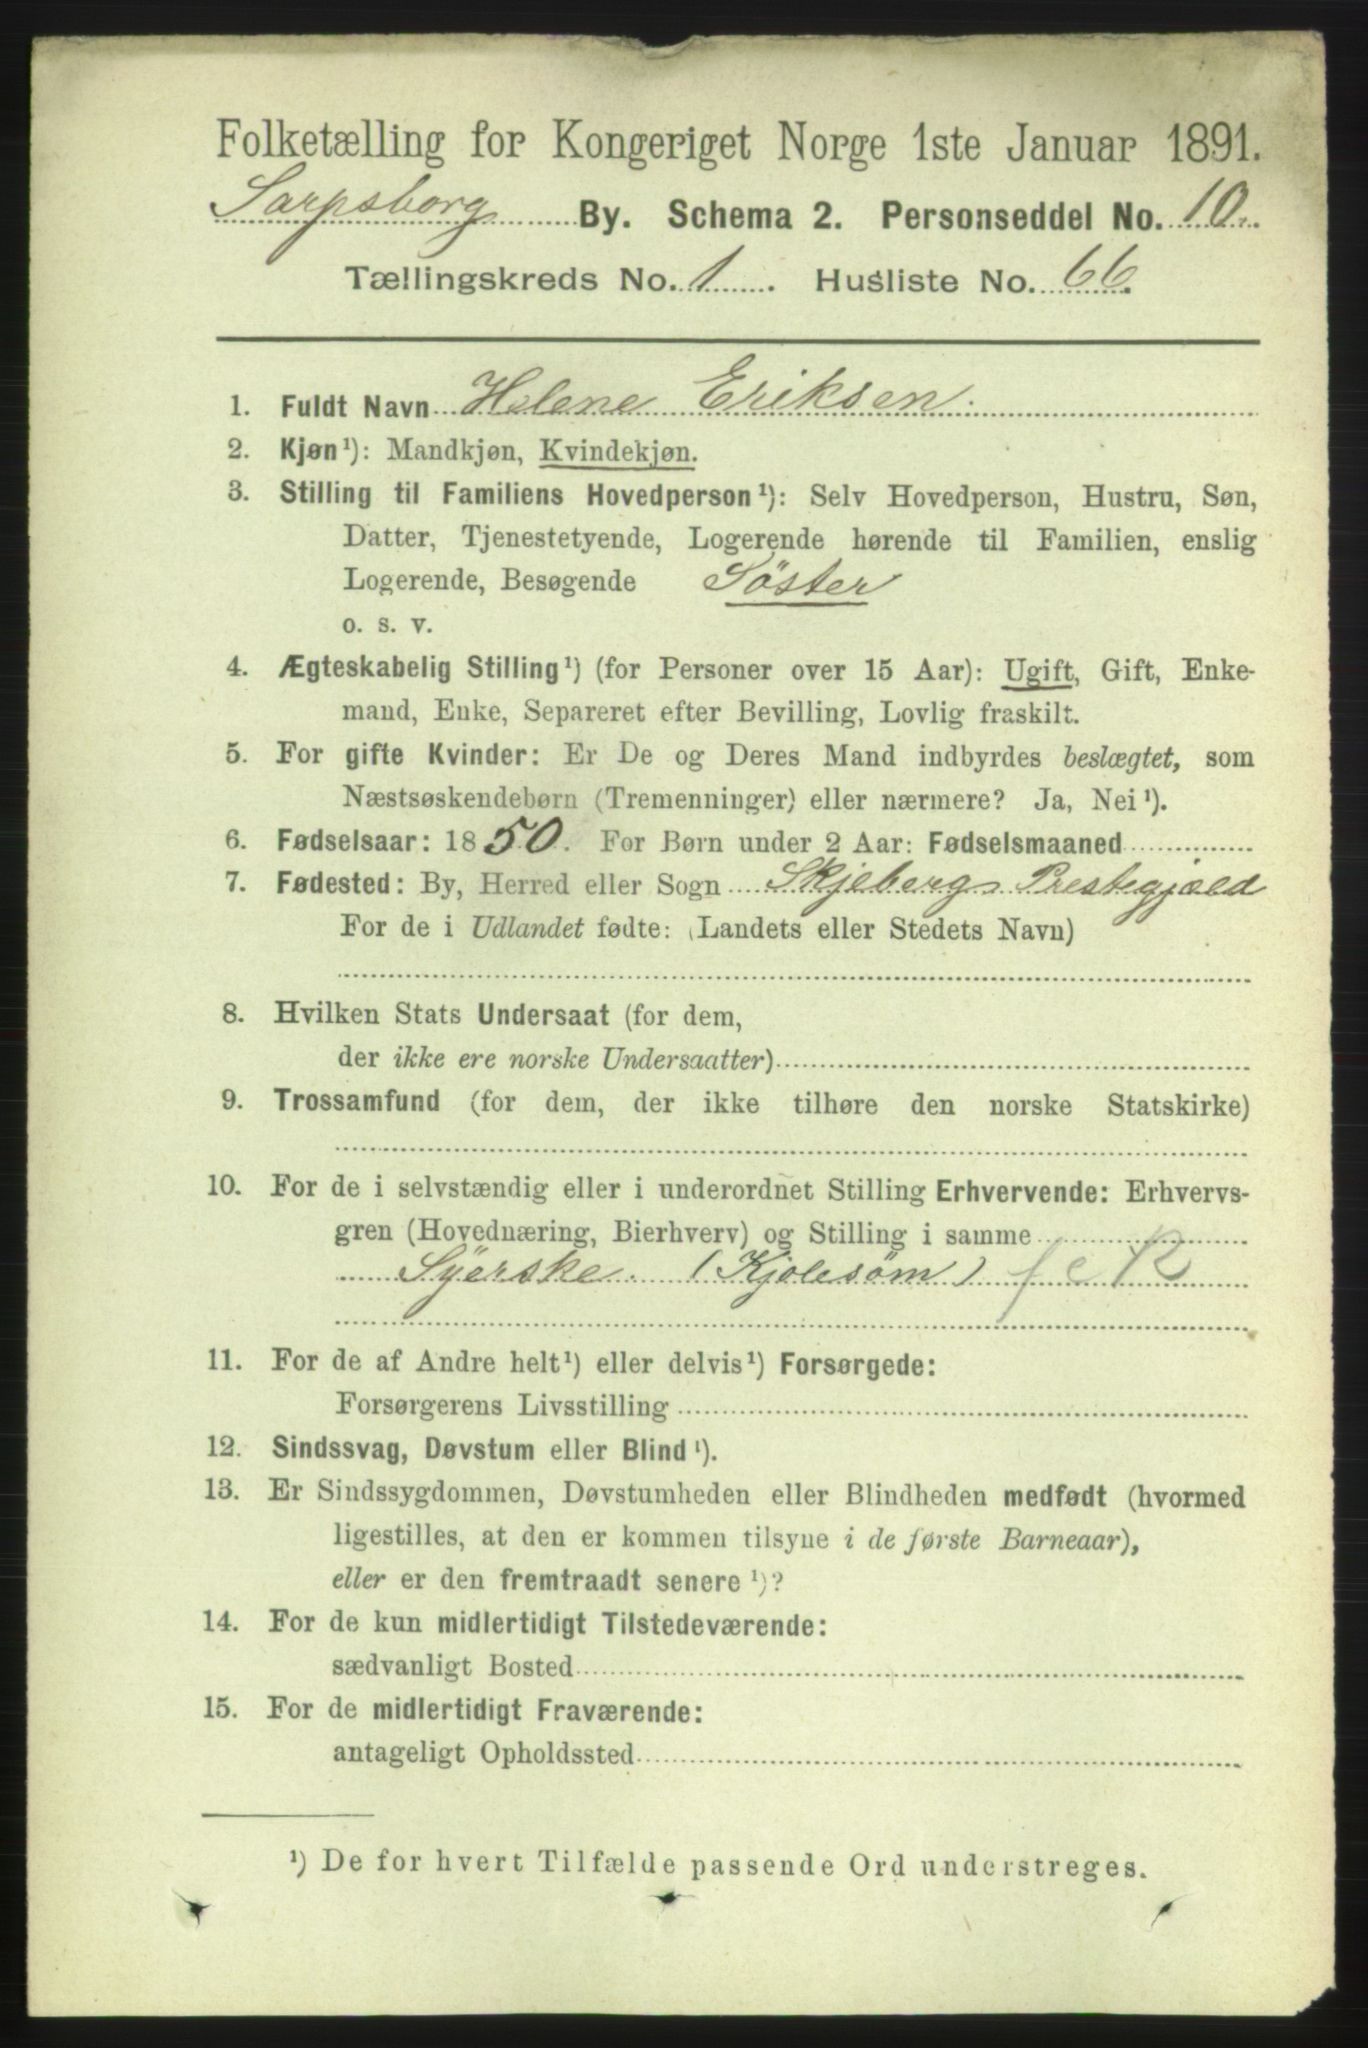 Folketælling for Kongeriget Norge 1ste Januar 1891.
Sarpsborg By. Schema 2. Personseddel No. 10.
Tællingskreds No. 1. Husliste No. 66.
1. Fuldt Navn Helene Eriksen.
2. Kjøn¹): Mandkjøn, Kvindekjøn.
3. Stilling til Familiens Hovedperson¹): Selv Hovedperson, Hustru, Søn,
Datter, Tjenestetyende, Logerende hørende til Familien, enslig
Logerende, Besøgende Söster
o. s. v.
4. Ægteskabelig Stilling¹) (for Personer over 15 Aar): Ugift, Gift, Enke-
mand, Enke, Separeret efter Bevilling, Lovlig fraskilt.
5. For gifte Kvinder: Er De og Deres Mand indbyrdes beslægtet, som
Næstsøskendebørn (Tremenninger) eller nærmere? Ja, Nei¹).
6. Fødselsaar: 1850. For Børn under 2 Aar: Fødselsmaaned
7. Fødested: By, Herred eller Sogn Skjebergs Prestegjæld
For de i Udlandet fødte: (Landets eller Stedets Navn)
8. Hvilken Stats Undersaat (for dem,
der ikke ere norske Undersaatter)
9. Trossamfund (for dem, der ikke tilhøre den norske Statskirke)
10. For de i selvstændig eller i underordnet Stilling Erhvervende: Erhvervs-
gren (Hovednæring, Bierhverv) og Stilling i samme
Syerske. (Kjolesøm)
11. For de af Andre helt¹) eller delvis¹) Forsørgede:
Forsørgerens Livsstilling
12. Sindssvag, Døvstum eller Blind¹).
13. Er Sindssygdommen, Døvstumheden eller Blindheden medfødt (hvormed
ligestilles, at den er kommen tilsyne i de første Barneaar),
eller er den fremtraadt senere¹)?
14. For de kun midlertidigt Tilstedeværende:
sædvanligt Bosted
15. For de midlertidigt Fraværende:
antageligt Opholdssted
¹) De for hvert Tilfælde passende Ord understreges.